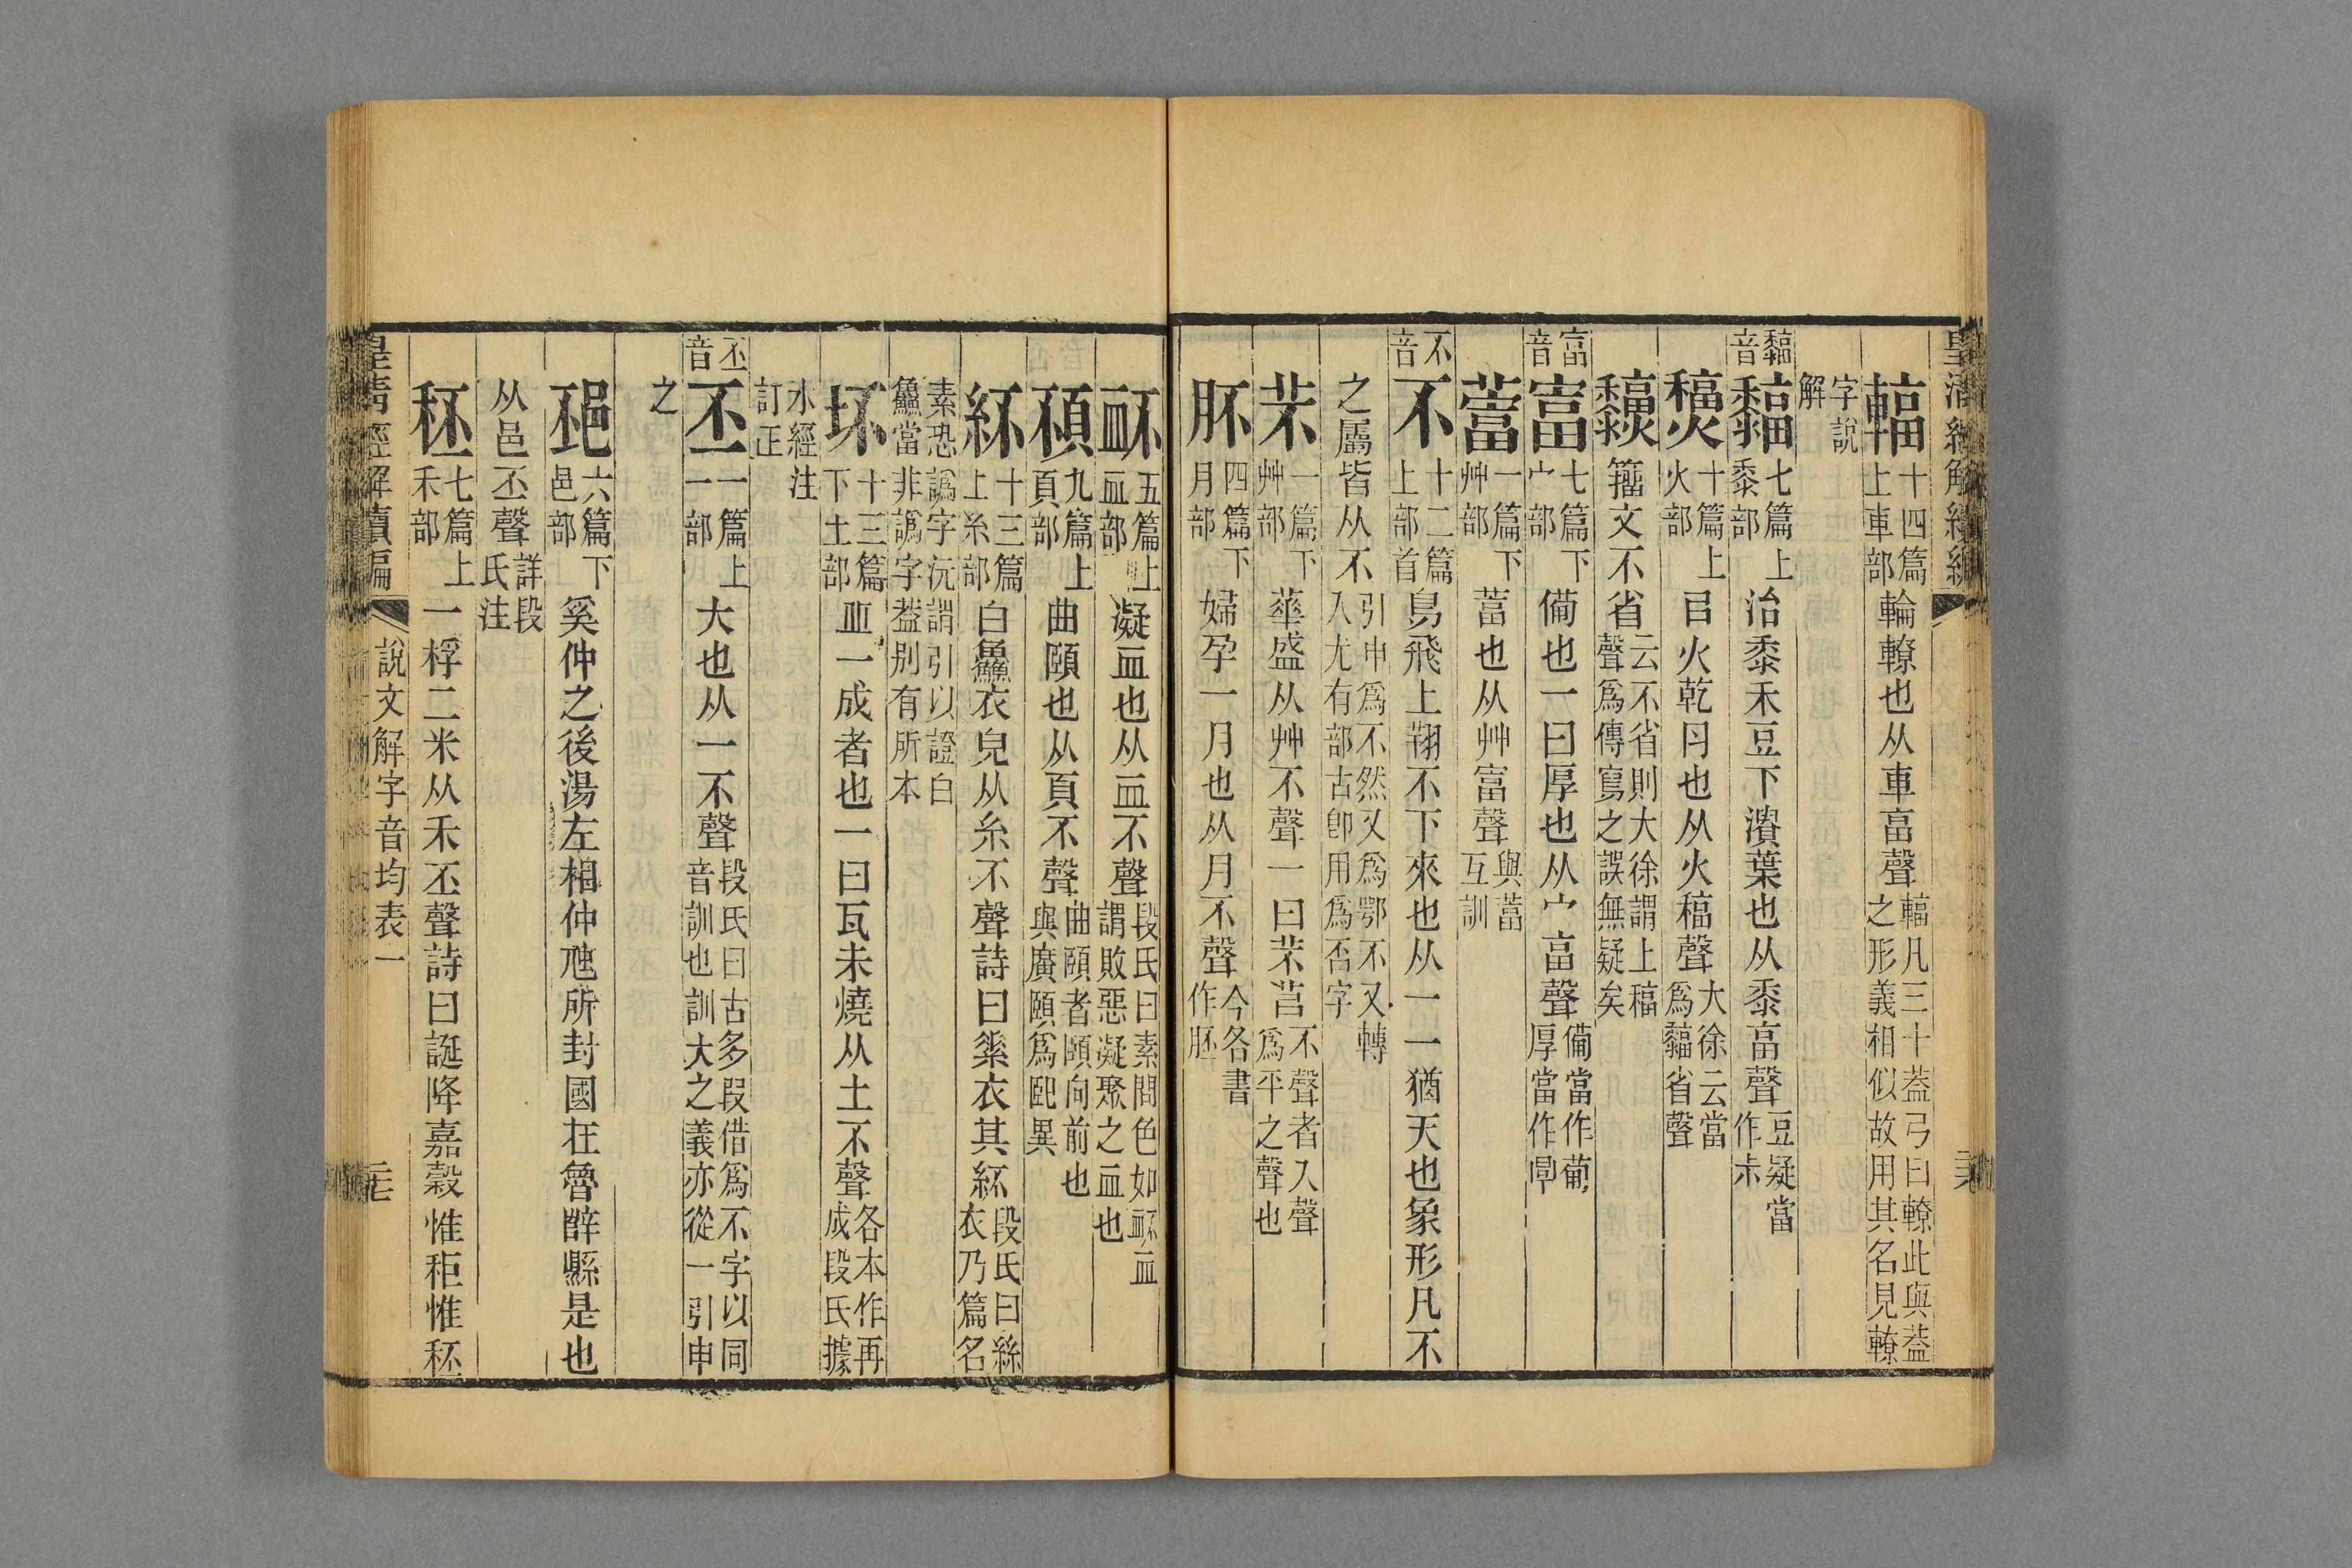 皇清經解續編
輻十四篇上車部輪轑也从車畐聲輻凡三十葢弓曰轑此與葢之形義相似故用其名見轑
字說解
䵗音䵗七篇上黍部治黍禾豆下潰葉也从黍畐聲豆疑當作尗
𤏸十篇上火部㠯火乾肉也从火稫聲大徐云當爲䵗省聲
籒文不省云不省則大徐謂上稫聲爲傳寫之誤無疑矣
富音富七篇下宀部備也一曰厚也从宀畐聲備當作葡厚當作㫗
葍一篇下艸部葍也从艸富聲與葍互訓
不音不十二篇上部首鳥飛上翔不下來也从一一猶天也象形凡不
之屬皆从不引申爲不然又爲鄂不又轉入尤有部古卽用爲否字
芣一篇下艸部華盛从艸不聲一曰芣苢不聲者入聲爲平之聲也
肧四篇下月部婦孕一月也从月不聲今各書作胚
衃五篇上血部凝血也从血不聲段氏曰素問色如衃血謂敗惡凝聚之血也
䫠九篇上頁部曲頤也从頁不聲曲頤者頤向前也與廣頤爲㔽異
紑十三篇上糸部白鱻衣皃从糸不聲詩曰絲衣其紑段氏曰絲衣乃篇名
素恐譌字沅謂引以證白鱻當非譌字葢別有所本
坏十三篇下土部𠀤一成者也一曰瓦未燒从土不聲各本作再成段氏據
水經注訂正
丕音丕一篇上一部大也从一不聲段氏曰古多叚借爲不字以同音訓也訓大之義亦從一引申
之
邳六篇下邑部奚仲之後湯左相仲虺所封國在魯辥縣是也
从邑丕聲詳段氏注
秠七篇上禾部一稃二米从禾丕聲詩曰誕降嘉穀惟秬惟秠
皇清經解續編
說文解字音均表一